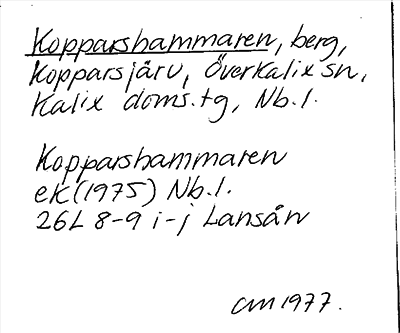 Kopparshammaren, berg,
Kopparsjärv, Överkalix sn,
Kalix doms.tg, Nb.l.
Kopparshammaren
ek(1975) Nb.l.
26L 8-9 i-j Lansån
am 1977.